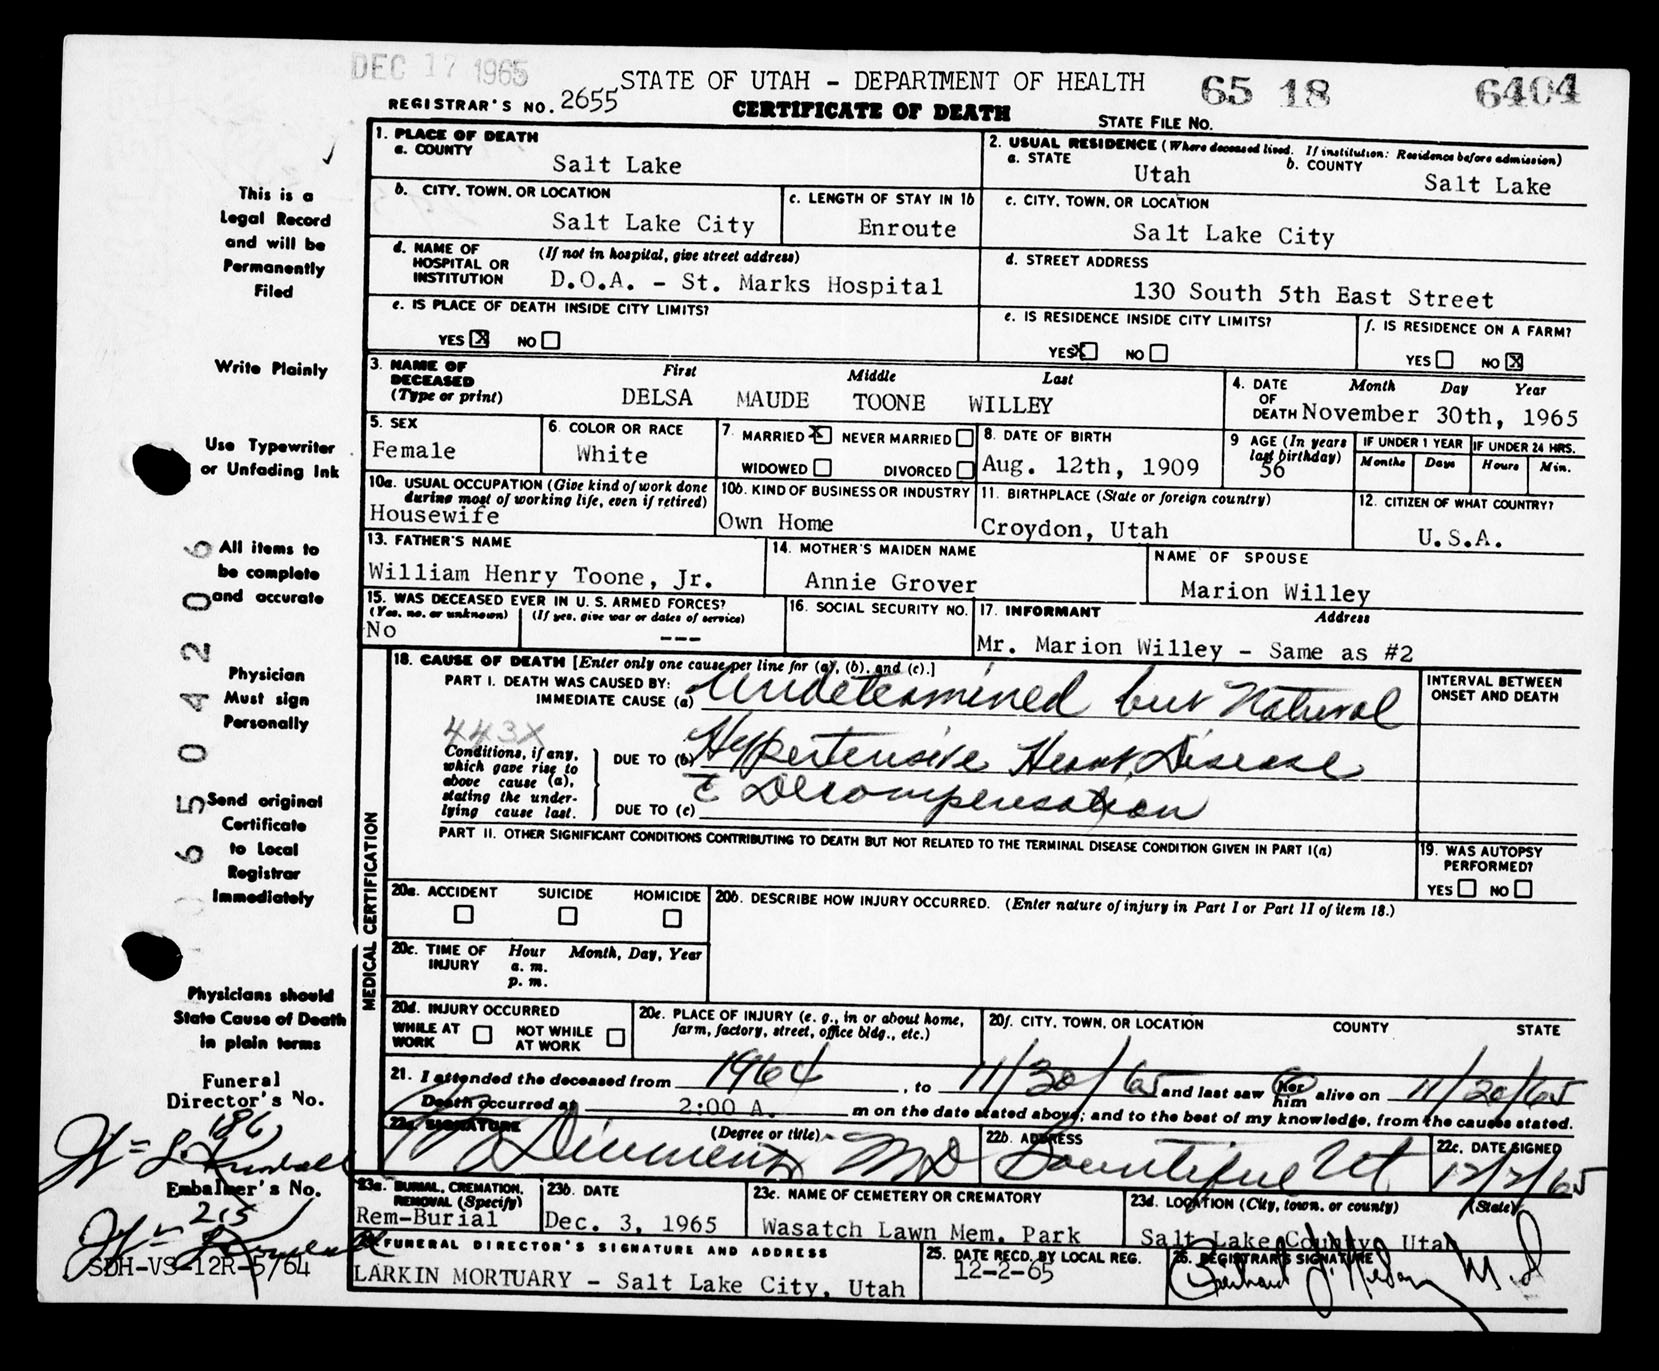 DEC 17 1965
STATE OF UTAH - DEPARTMENT OF HEALTH
65 18 6404
REGISTRAR'S NO. 2655
CERTIFICATE OF DEATH
STATE FILE NO.
This is a
Legal Record
and will be
Permanently
Filed
Write Plainly
Use Typewriter
or Unfading Ink
All items to
be complete
and accurate
Physician
Must sign
Personally
Send original
Certificate
to Local
Registrar
Immediately
Physicians should
State Cause of Death
in plain terms
Funeral
Director's No.
186
Embalmer's No.
215
SDH-VS-12R-5/64
0650420 6
1. PLACE OF DEATH
a. COUNTY
Salt Lake
2. USUAL RESIDENCE (Where deceased lived. If institution: Residence before admission)
a. STATE Utah b. COUNTY Salt Lake
b. CITY, TOWN, OR LOCATION
Salt Lake City
c. LENGTH OF STAY IN 1b
Enroute
c. CITY, TOWN, OR LOCATION
Salt Lake City
d. NAME OF HOSPITAL OR INSTITUTION (If not in hospital, give street address)
D.O.A. - St. Marks Hospital
d. STREET ADDRESS
130 South 5th East Street
e. IS PLACE OF DEATH INSIDE CITY LIMITS?
YES X NO
e. IS RESIDENCE INSIDE CITY LIMITS?
YES X NO
f. IS RESIDENCE ON A FARM?
YES NO X
3. NAME OF DECEASED (Type or print)
First Middle Last
DELSA MAUDE TOONE WILLEY
4. DATE OF DEATH
Month Day Year
November 30th, 1965
5. SEX
Female
6. COLOR OR RACE
White
7. MARRIED X NEVER MARRIED
WIDOWED DIVORCED
8. DATE OF BIRTH
Aug. 12th, 1909
9 AGE (In years last birthday)
56
IF UNDER 1 YEAR IF UNDER 24 HRS.
Months Days Hours Min.
10a. USUAL OCCUPATION (Give kind of work done during most of working life, even if retired)
Housewife
10b. KIND OF BUSINESS OR INDUSTRY
Own Home
11. BIRTHPLACE (State or foreign country)
Croydon, Utah
12. CITIZEN OF WHAT COUNTRY?
U.S.A.
13. FATHER'S NAME
William Henry Toone, Jr.
14. MOTHER'S MAIDEN NAME
Annie Grover
NAME OF SPOUSE
Marion Willey
15. WAS DECEASED EVER IN U. S. ARMED FORCES?
(Yes, no, or unknown) (If yes, give war or dates of service)
No ---
16. SOCIAL SECURITY NO.
17. INFORMANT Address
Mr. Marion Willey - Same as #2
MEDICAL CERTIFICATION
18. CAUSE OF DEATH [Enter only one cause per line for (a), (b), and (c).]
PART I. DEATH WAS CAUSED BY:
IMMEDIATE CAUSE (a) Undetermined but Natural
INTERVAL BETWEEN ONSET AND DEATH
443X
Conditions, if any, which gave rise to above cause (a), stating the underlying cause last.
DUE TO (b) Hypertensive Heart Disease
DUE TO (c) c̄ Decompensation
PART II. OTHER SIGNIFICANT CONDITIONS CONTRIBUTING TO DEATH BUT NOT RELATED TO THE TERMINAL DISEASE CONDITION GIVEN IN PART I(a)
19. WAS AUTOPSY PERFORMED?
YES NO
20a. ACCIDENT SUICIDE HOMICIDE
20b. DESCRIBE HOW INJURY OCCURRED. (Enter nature of injury in Part I or Part II of item 18.)
20c. TIME OF INJURY Hour Month, Day, Year
a. m.
p. m.
20d. INJURY OCCURRED
WHILE AT WORK NOT WHILE AT WORK
20e. PLACE OF INJURY (e. g., in or about home, farm, factory, street, office bldg., etc.)
20f. CITY, TOWN, OR LOCATION COUNTY STATE
21. I attended the deceased from 1964, to 11/30/65 and last saw her him alive on 11/20/65
Death occurred at 2:00 A. m on the date stated above; and to the best of my knowledge, from the causes stated.
22a. SIGNATURE (Degree or title)
MD
22b. ADDRESS
Bountiful Ut
22c. DATE SIGNED
12/2/65
23a. BURIAL, CREMATION, REMOVAL (Specify)
Rem-Burial
23b. DATE
Dec. 3, 1965
23c. NAME OF CEMETERY OR CREMATORY
Wasatch Lawn Mem. Park
23d. LOCATION (City, town, or county) (State)
Salt Lake County, Utah
24. FUNERAL DIRECTOR'S SIGNATURE AND ADDRESS
LARKIN MORTUARY - Salt Lake City, Utah
25. DATE RECD. BY LOCAL REG.
12-2-65
26. REGISTRAR'S SIGNATURE